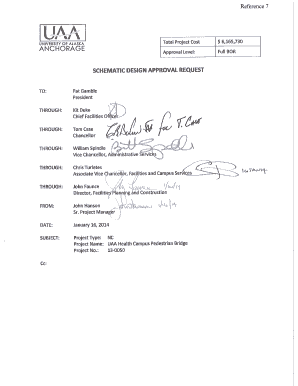 Reference 7
UAA
UNIVERSITY of ALASKA
ANCHORAGE
Total Project Cost $ 6,165,730
Approval Level: Full BOR
SCHEMATIC DESIGN APPROVAL REQUEST
TO: Pat Gamble
President
THROUGH: Kit Duke
Chief Facilities Officer
THROUGH: Tom Case
Chancellor
for T. Case
THROUGH: William Spindle
Vice Chancellor, Administrative Services
THROUGH: Chris Turletes
Associate Vice Chancellor, Facilities and Campus Services
THROUGH: John Faunce
Director, Facilities Planning and Construction
FROM: John Hanson
Sr. Project Manager
DATE: January 16, 2014
SUBJECT: Project Type: NC
Project Name: UAA Health Campus Pedestrian Bridge
Project No.: 13-0050
Cc: